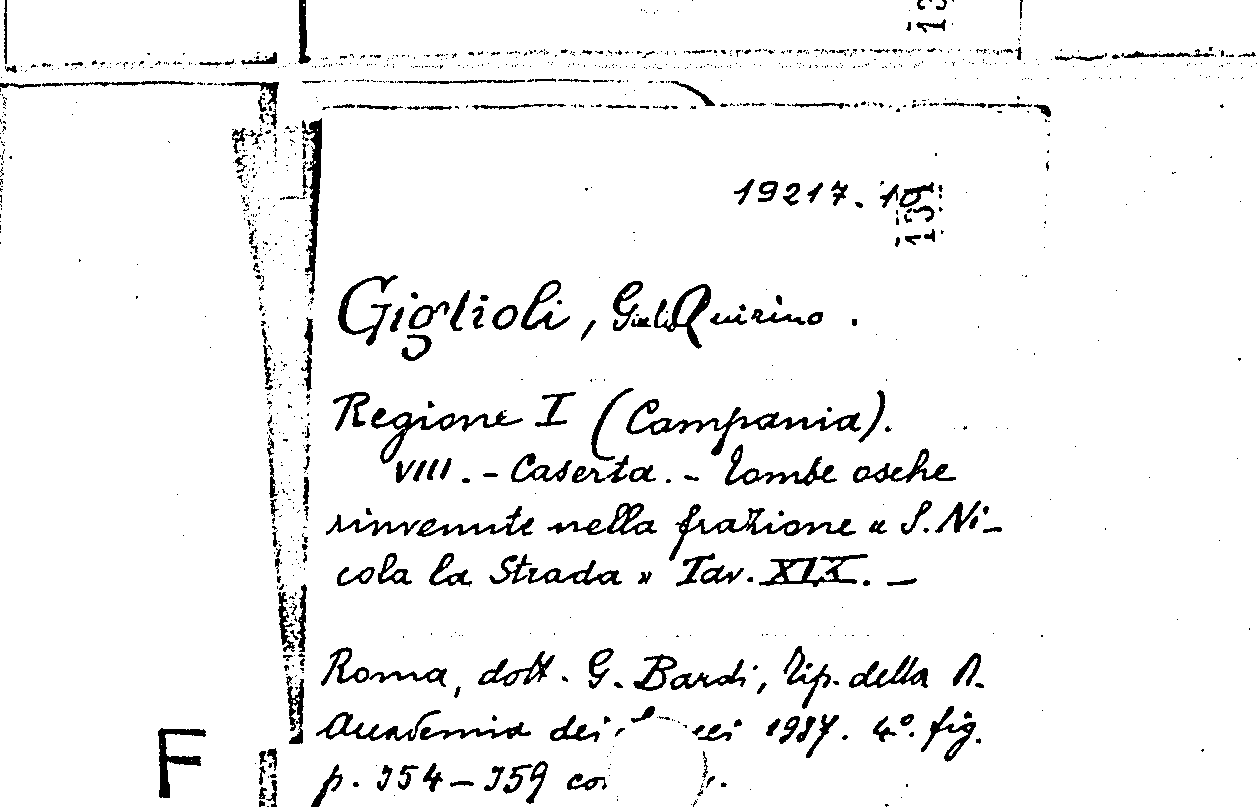 13
19217. 10
131
Giglioli, Giulio Quirino.
Regione I (Campania).
VIII. - Caserta. - Tombe osche
rinvenute nella frazione « S. Ni-
cola la Strada » Tav. XIX. -
Roma, dott. G. Bardi, tip. della R.
Accademia dei 1937. 4º. fig.
p. 354-359
F